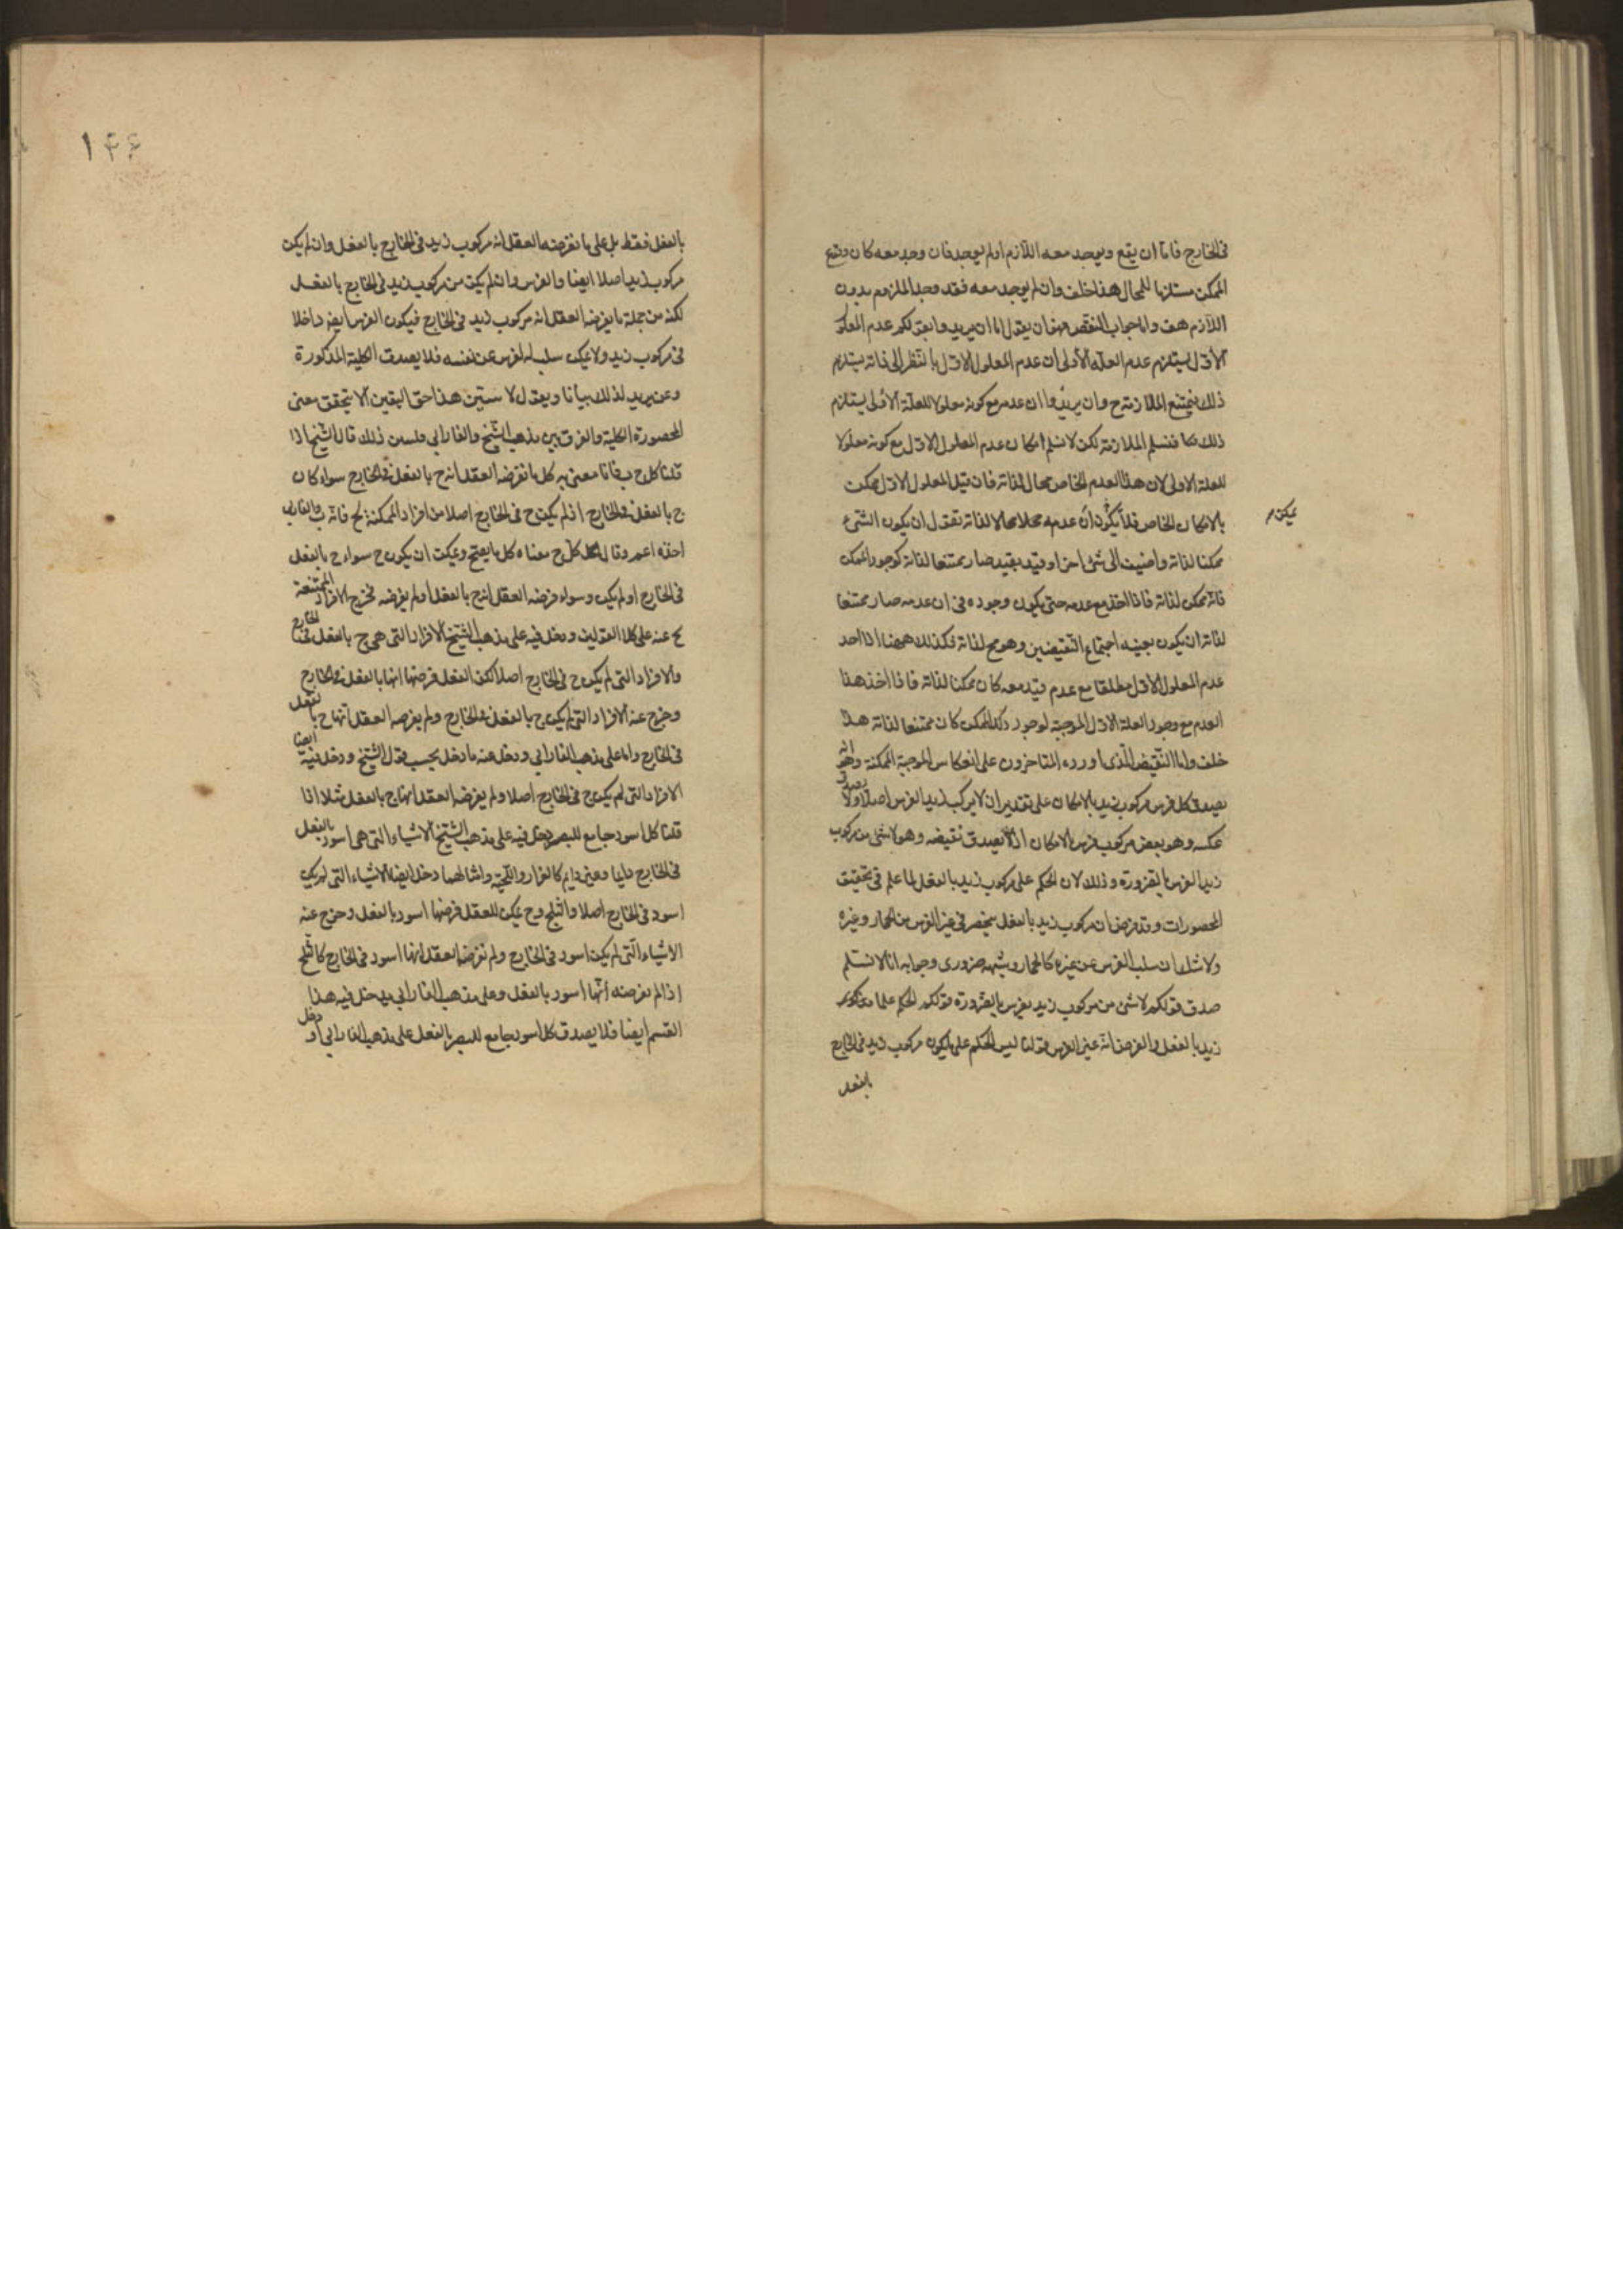 فى الخارج فاما ان يقع ويوجد معه اللازم او لم يوجد فان وجد معه كان وقوع
الممكن مستلزما للمحال هذا خلف وان لم يوجد معه فقد وجد الملزوم بدون
اللازم هف واما جواب النقض فهو ان يقال اما ان يريدوا بقولكم عدم المعلول
الاول يستلزم عدم العلة الاولى ان عدم المعلول الاول بالنظر الى ذاته يستلزم
ذلك فيمتنع الملازمة ح وان يريدوا ان عدمه مع كونه معلولا للعلة الاولى يستلزم
ذلك فنسلم الملازمة لكن لا نسلم امكان عدم المعلول الاول مع كونه معلولا
للعلة الاولى لان هذا العدم الخاص محال لذاته فان قيل المعلول الاول ممكن
بالامكان الخاص فلا يكون ان عدمه محالا لذاته نقول ان يكون الشئ
يمكن م
ممكنا لذاته واضيف الى شئ اخر او قيد بقيد صار ممتنعا لذاته كوجود الممكن
فانه ممكن لذاته فاذا اخذ مع عدمه حتى يكون وجوده فى ان عدمه صار ممتنعا
لذاته ان يكون بعينه اجتماع النقيضين وهو مح لذاته فكذلك ههنا اذا احد
عدم المعلول الاول مطلقا مع عدم قيد معه كان ممكنا لذاته فاذا اخذ هذا
العدم مع وجود العلة الاولى الموجبة لوجود ذلك الممكن كان ممتنعا لذاته هذا
خلف واما النقيض الذى اورده المتاخرون على انعكاس الموجبة الممكنة وهو انه
يصدق كل فرس مركوب زيد بالامكان على تقدير ان لا يركب زيد الفرس اصلا ولا يصدق
عكسه وهو بعض مركوب فرس بالامكان اذ لا يصدق نقيضه وهو لا شئ من مركوب
زيد الفرس بالضرورة وذلك لان الحكم على مركوب زيد بالفعل لما علم فى تحقيق
المحصورات وقد فرض ان مركوب زيد بالفعل ينحصر فى غير الفرس من الحمار وغيره
ولا شك ان سلب الفرس عن غيره كالحمار وشبهه ضرورى وجوابه انا لا نسلم
صدق قولكم لا شئ من مركوب زيد بفرس بالضرورة قولكم الحكم على مركوب
زيد بالفعل والفرض انه غير الفرس قولنا ليس الحكم على مايكون مركوب زيد فى الخارج
بالفعل
١٤٤
بالفعل فقط بل على ما نفرضه العقل انه مركوب زيد فى الخارج بالفعل وان لم يكن
مركوب زيد اصلا ايضا والفرس وان لم يكن من مركوب زيد فى الخارج بالفعل
لكنه من جملة ما يفرض العقل انه مركوب زيد فى الخارج فيكون الفرس ايضا داخلا
فى مركوب زيد ولا يمكن سلب الفرس عن نفسه فلا يصدق الكلية المذكورة
وعن يريد لذلك بيانا ويقول لا ستبين هذا حق اليقين الا بتحقق معنى
المحصورة الكلية والفرق بين مذهب الشيخ والفارابى فلنبين ذلك قال الشيخ اذا
قلنا كل ج ب فانا معنى به كل ما نفرضه العقل انه ج بالفعل فى الخارج سواء كان
ج بالفعل فى الخارج اذ لم يكن ج فى الخارج اصلا من افراد الممكنة لج فانه ب والفارابى
اخذه اعم وقال كل ج معناه كل ما يصح ويمكن ان يكون ج سواء ج بالفعل
فى الخارج او لم يكن وسواء فرضه العقل انه ج بالفعل او لم يفرضه فخرج الافراد الممتنعة
لج عنه على كلا القولين ودخل فيه على مذهب الشيخ الافراد التى هى ج بالفعل فى الخارج
والافراد التى لم يكن ج فى الخارج اصلا لكن العقل فرضها انها بالفعل فى الخارج
وخرج عنه الافراد التى لم يكن ج بالفعل فى الخارج ولم يفرضه العقل انها ج بالفعل
فى الخارج واما على مذهب الفارابى ودخل منه ما دخل بحسب قول الشيخ ودخل فيه ايضا
الافراد التى لم يكن ج فى الخارج اصلا ولم يفرضه العقل انها ج بالفعل مثلا اذا
قلنا كل اسود جامع للبصر دخل فيه على مذهب الشيخ الاشياء التى هى اسود بالفعل
فى الخارج دايما وغير دايم كالغراب واللحية وامثالهما دخل ايضا الاشياء التى لم يكن
اسود فى الخارج اصلا والثلج وح يمكن للعقل فرضها اسود بالفعل وخرج عنه
الاشياء التى لم يكن اسود فى الخارج ولم نفرض العقل انها اسود فى الخارج كالثلج
اذا لم نفرضه انها اسود بالفعل وعلى مذهب الفارابى يدخل فيه هذا
القسم ايضا فلا يصدق كل اسود جامع للبصر بالفعل على مذهب الفارابى او دخل